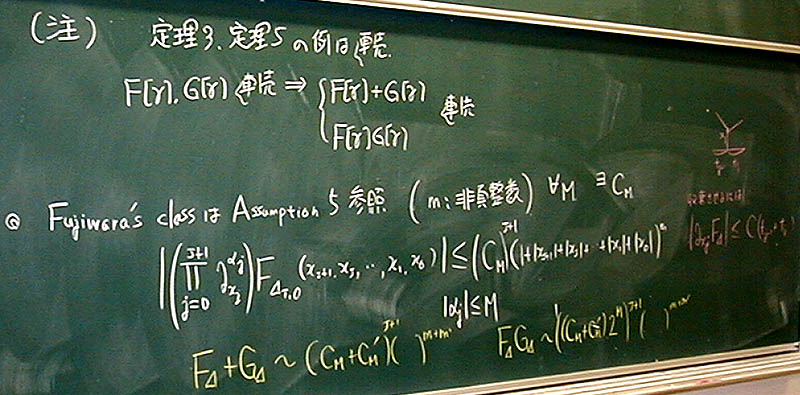 (注) 定理3、定理5の例は連続.
F[γ], G[γ] 連続 ⇒ { F[γ]+G[γ] 連続
F[γ]G[γ]
Fujiwara's class は Assumption 5 参照 (m: 非負整数) ∀M ∃C_M
|(∏_{j=0}^{J+1} ∂_{x_j}^{α_j}) F_{Δ_{T,0}}(x_{J+1}, x_J, ..., x_1, x_0)| ≤ (C_M)^{J+1}(1+|x_{J+1}|+|x_J|+...+|x_1|+|x_0|)^m
|α_j| ≤ M
F_Δ+G_Δ ~ (C_M+C_M')^{J+1}( )^{m+m'}
F_Δ G_Δ ~ ((C_M+C_M')2^M)^{J+1}( )^{m+m'}
|∂_{x_j}F_Δ| ≤ C(